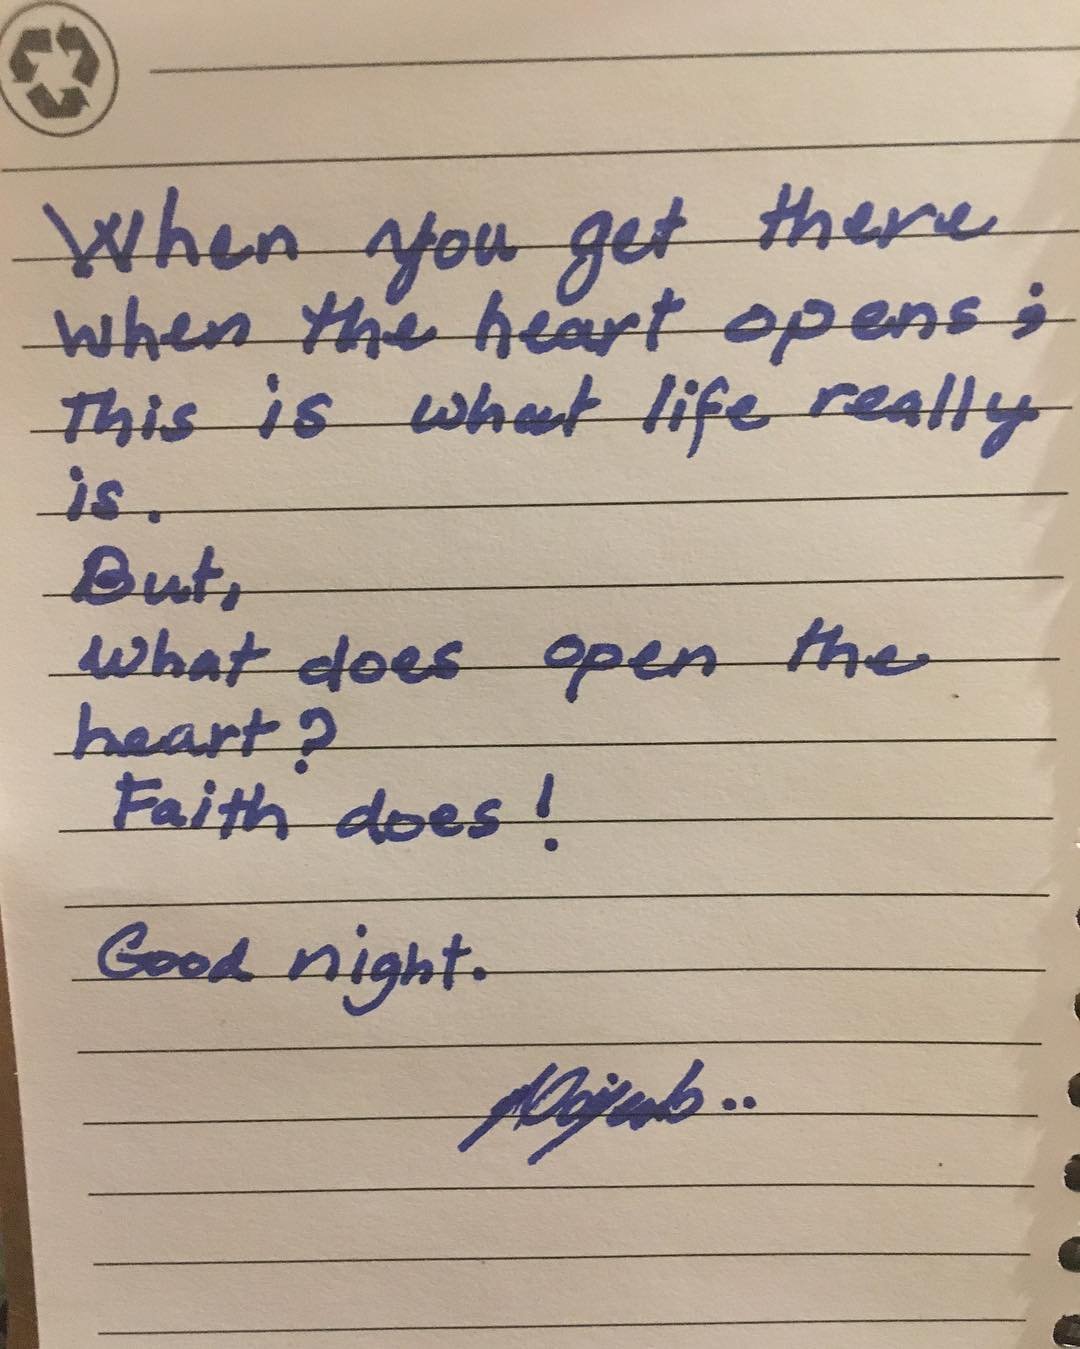 When you get there
when the heart opens ;
This is what life really
is.
But,
what does open the
heart?
Faith does!
Good night.